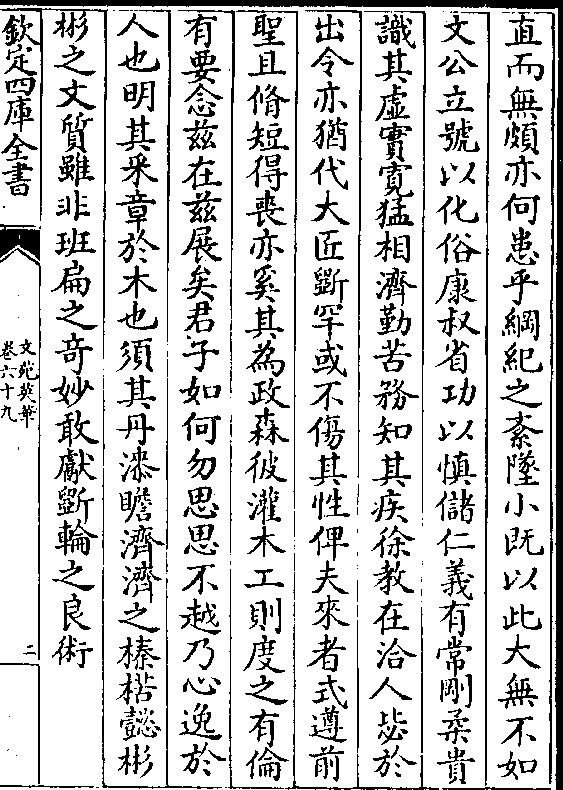 直而無頗亦何患乎綱紀之紊墜小既以此大無不如
文公立號以化俗康叔省功以慎儲仁義有常剛柔貴
識其虛實寛猛相濟勤苦務知其疾徐教在洽人毖於
出令亦猶代大匠斵罕或不傷其性俾夫來者式遵前
聖且脩短得喪亦奚其為政森彼灌木工則度之有倫
有要念兹在兹展矣君子如何勿思思不越乃心逸於
人也明其采章於木也須其丹漆瞻濟濟之榛楛懿彬
彬之文質雖非班扁之奇妙敢獻斵輪之良術
欽定四庫全書
文苑英華
卷六十九
二